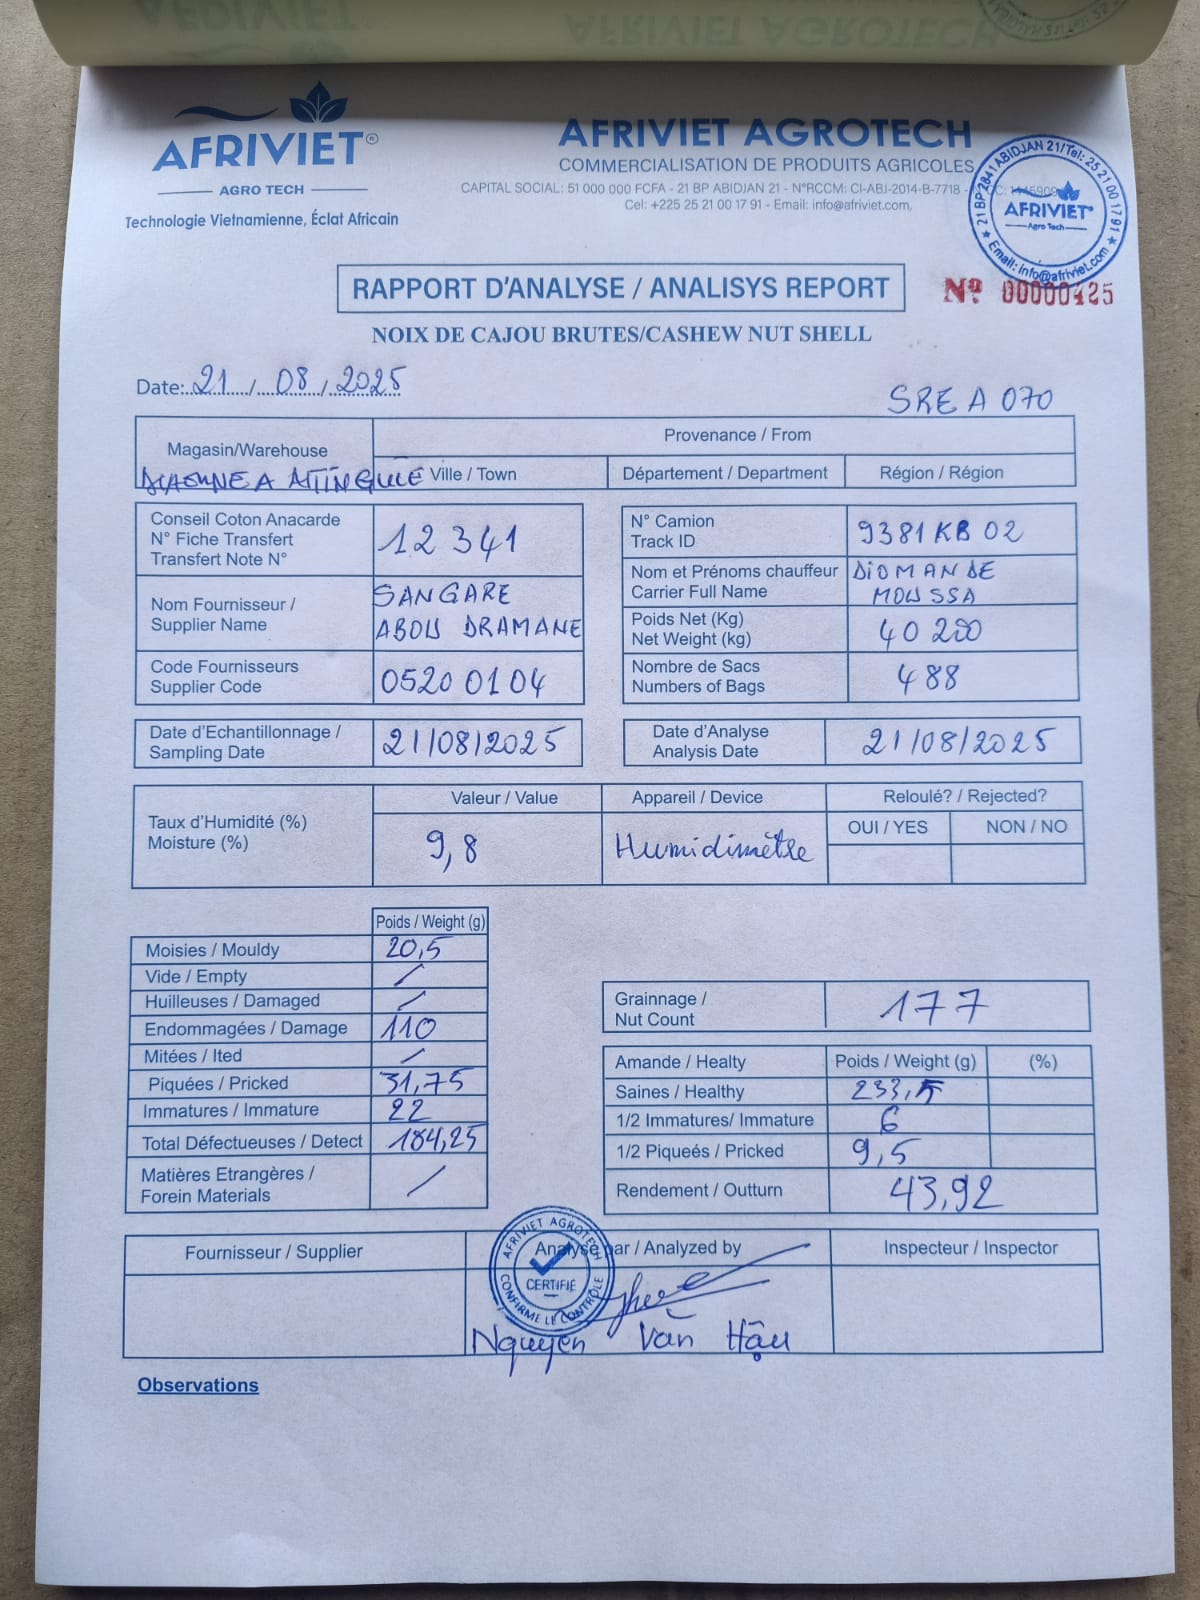 AFRIVIET®
AGRO TECH
Technologie Vietnamienne, Éclat Africain
AFRIVIET AGROTECH
COMMERCIALISATION DE PRODUITS AGRICOLES
CAPITAL SOCIAL: 51 000 000 FCFA - 21 BP ABIDJAN 21 - N°RCCM: CI-ABJ-2014-B-7718 -
Cel: +225 25 21 00 17 91 - Email: info@afriviet.com,
21 BP 2841 ABIDJAN 21/Tel: 25 21 00 17 91
AFRIVIET
Agro Tech
Email: info@afriviet.com
RAPPORT D'ANALYSE / ANALISYS REPORT
Nº 00000425
NOIX DE CAJOU BRUTES/CASHEW NUT SHELL
Date: 21 / 08 / 2025
SRE A 070
Magasin/Warehouse
Provenance / From
ATTINGUIE
Ville / Town
Département / Department
Région / Région
Conseil Coton Anacarde
N° Fiche Transfert
Transfert Note N°
12341
N° Camion
Track ID
9381 KB 02
Nom Fournisseur /
Supplier Name
SANGARE
ABOU DRAMANE
Nom et Prénoms chauffeur
Carrier Full Name
DIOMANDE
MOUSSA
Poids Net (Kg)
Net Weight (kg)
40 200
Code Fournisseurs
Supplier Code
0520 0104
Nombre de Sacs
Numbers of Bags
488
Date d'Echantillonnage /
Sampling Date
21/08/2025
Date d'Analyse
Analysis Date
21/08/2025
Taux d'Humidité (%)
Moisture (%)
Valeur / Value
9,8
Appareil / Device
Humidimètre
Reloulé? / Rejected?
OUI / YES
NON / NO
Poids / Weight (g)
Moisies / Mouldy 20,5
Vide / Empty /
Huilleuses / Damaged /
Endommagées / Damage 110
Mitées / Ited /
Piquées / Pricked 31,75
Immatures / Immature 22
Total Défectueuses / Detect 184,25
Matières Etrangères /
Forein Materials /
Grainnage /
Nut Count
177
Amande / Healty Poids / Weight (g) (%)
Saines / Healthy 233,5
1/2 Immatures/ Immature 6
1/2 Piqueés / Pricked 9,5
Rendement / Outturn 43,92
Fournisseur / Supplier
Analysé par / Analyzed by
Inspecteur / Inspector
AFRIVIET AGROTECH
CERTIFIÉ
CONFIRME LE CONTRÔLE
Nguyen Văn Hậu
Observations